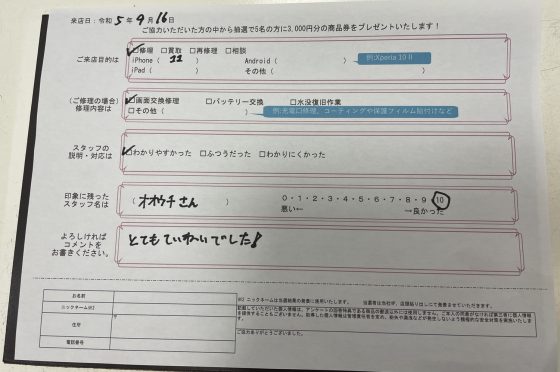 来店日：令和 5 年 9 月 16 日
ご協力いただいた方の中から抽選で5名の方に3,000円分の商品券をプレゼントいたします！
ご来店目的は
☑修理 □買取 □再修理 □相談
iPhone（ 11 ） Android（ ） 例:Xperia 10 II
iPad（ ） その他（ ）
（ご修理の場合）
修理内容は
☑画面交換修理 □バッテリー交換 □水没復旧作業
□その他（ ） 例:充電口修理、コーティングや保護フィルム貼付けなど
スタッフの
説明・対応は
☑わかりやすかった □ふつうだった □わかりにくかった
印象に残った
スタッフ名は
（ オオウチさん ）
0・1・2・3・4・5・6・7・8・9・10
悪い← →良かった
よろしければ
コメントを
お書きください。
とてもていねいでした！
お名前
ニックネーム※2
住所
〒
電話番号
※2 ニックネームは当選結果の発表に使用いたします。 当選者は当社HP、店頭貼り出しにて発表させていただきます。
ご協力ありがとうございました。